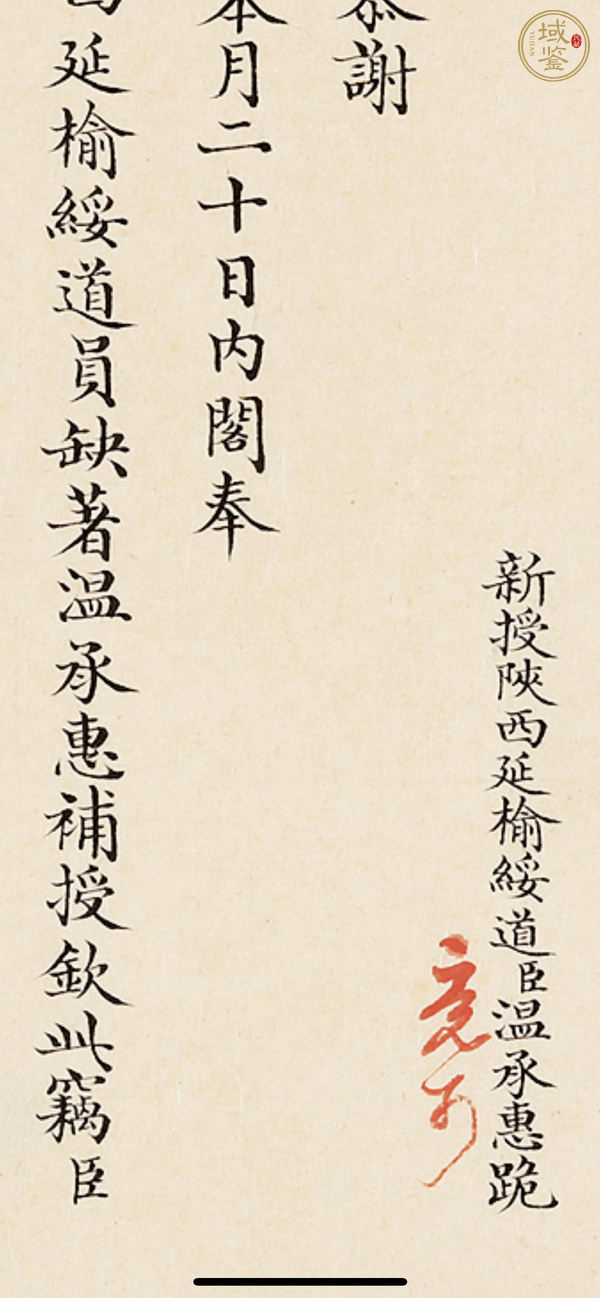 新授陝西延榆綏道臣温承惠跪
竟可
謝
本月二十日内閣奉
延榆綏道員缺著温承惠補授欽此竊臣
域鉴
YUJIAN